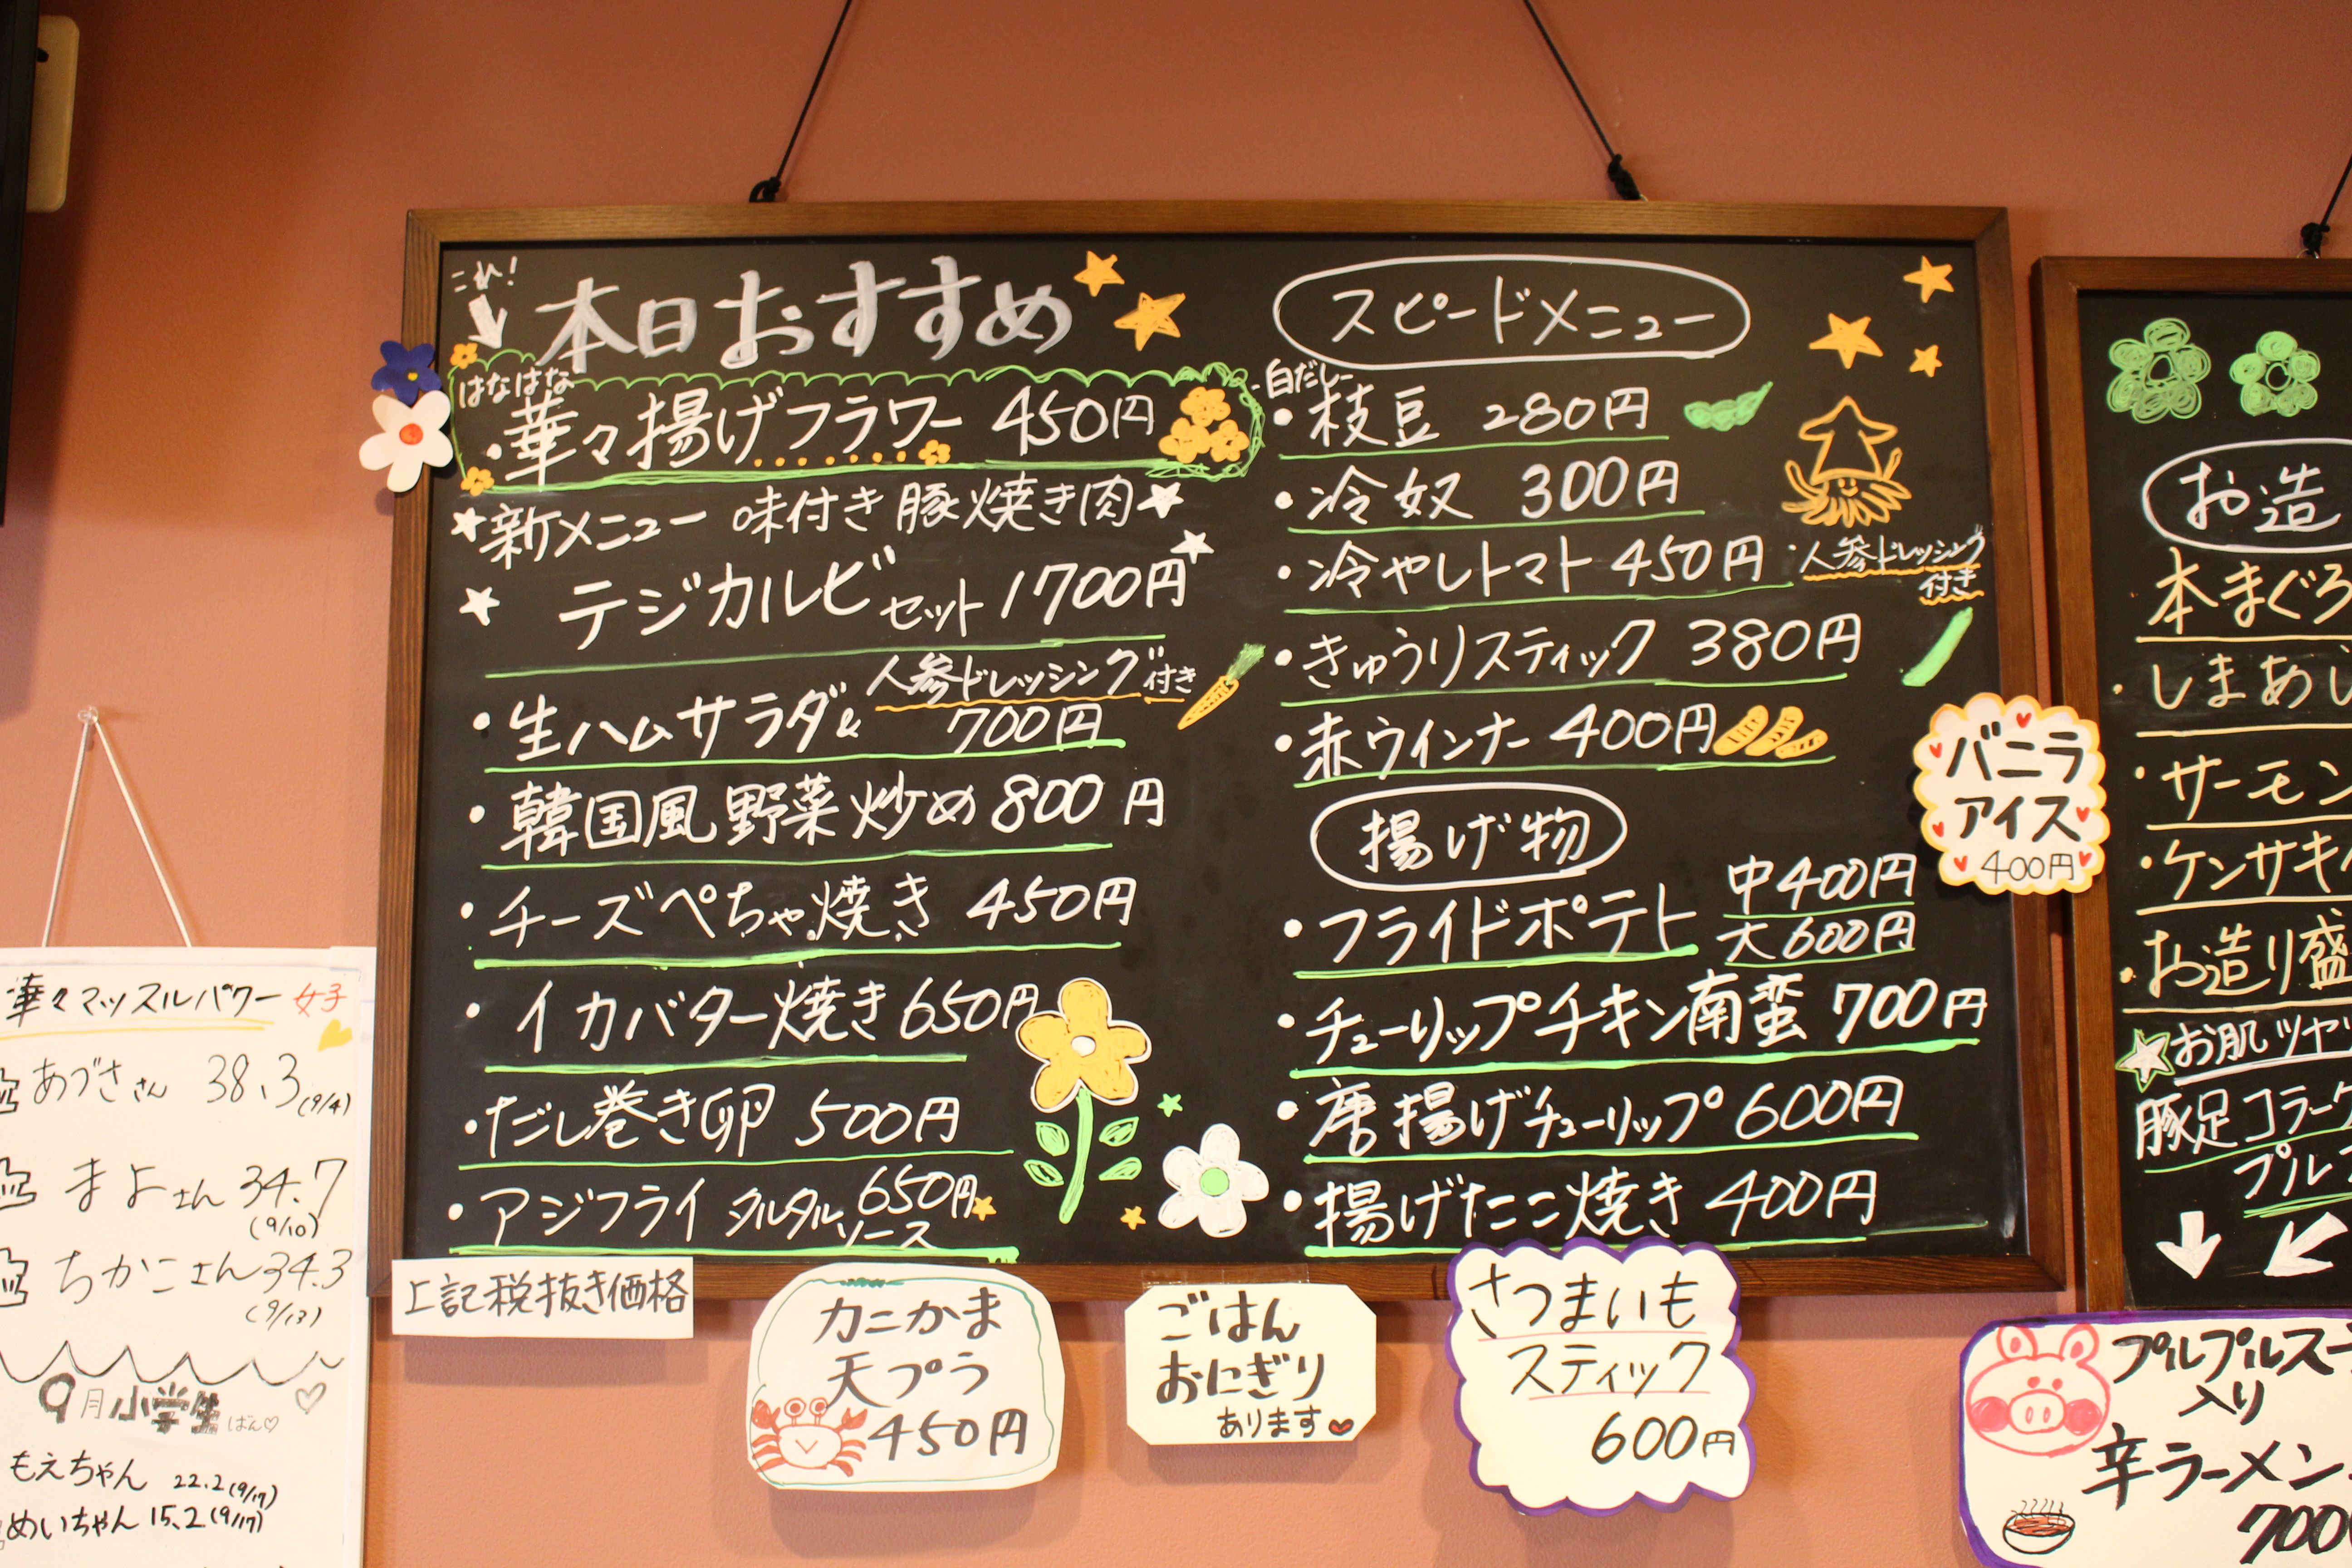 これ!
本日おすすめ
はなはな
・華々揚げフラワー 450円
新メニュー 味付き豚焼き肉
テジカルビセット 1700円
・生ハムサラダ 人参ドレッシング付き
700円
・韓国風野菜炒め 800円
・チーズぺちゃ焼き 450円
・イカバター焼き 650円
・だし巻き卵 500円
・アジフライ タルタルソース 650円
スピードメニュー
白だし
・枝豆 280円
・冷奴 300円
・冷やしトマト 450円 ・人参ドレッシング
付き
・きゅうりスティック 380円
・赤ウインナー 400円
揚げ物
・フライドポテト 中400円
大600円
・チューリップチキン南蛮 700円
・唐揚げチューリップ 600円
・揚げたこ焼き 400円
バニラ
アイス
400円
お造
・本まぐろ
・しまあじ
・サーモン
・ケンサキイ
・お造り盛
お肌ツヤツ
豚足コラーゲ
プルプ
上記税抜き価格
カニかま
天プラ
450円
ごはん
おにぎり
あります
さつまいも
スティック
600円
プルプルスー
入り
辛ラーメン
700
華々マッスルパワー 女子
あづささん 38.3(9/4)
まよさん 34.7
(9/10)
ちかこさん 34.3
(9/13)
9月小学生ばん
もえちゃん 22.2(9/17)
めいちゃん 15.2(9/17)